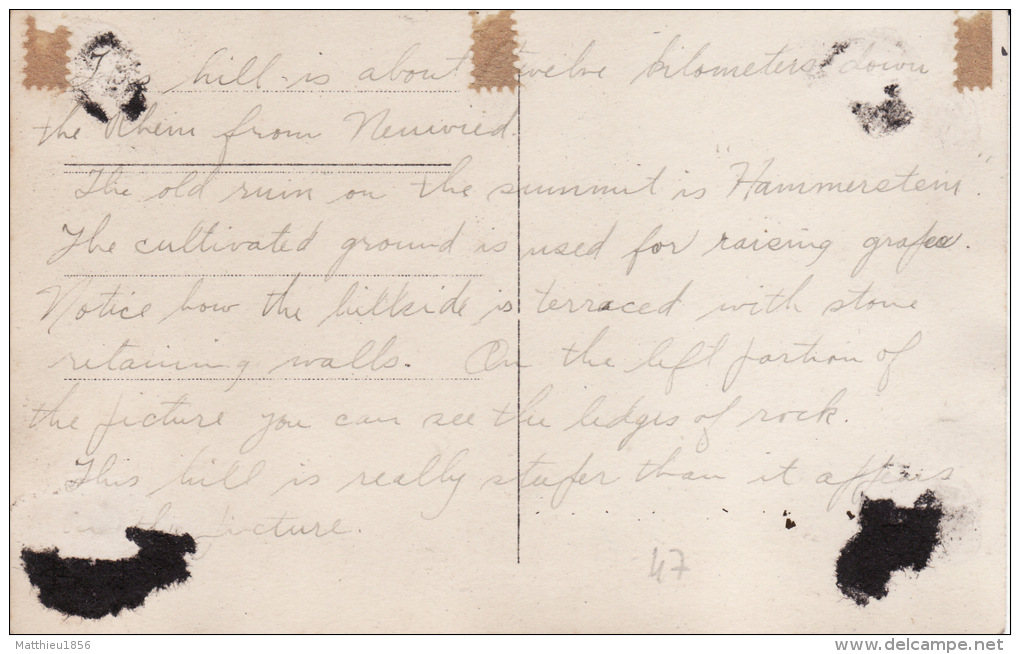 This hill is about twelve kilometers down
the Rhein from Neuwied.
The old ruin on the summit is "Hammerstein".
The cultivated ground is used for raising grapes.
Notice how the hillside is terraced with stone
retaining walls. On the left portion of
the picture you can see the ledges of rock.
This hill is really steeper than it appears
in the picture.
47
Matthieu1856
www.delcampe.net